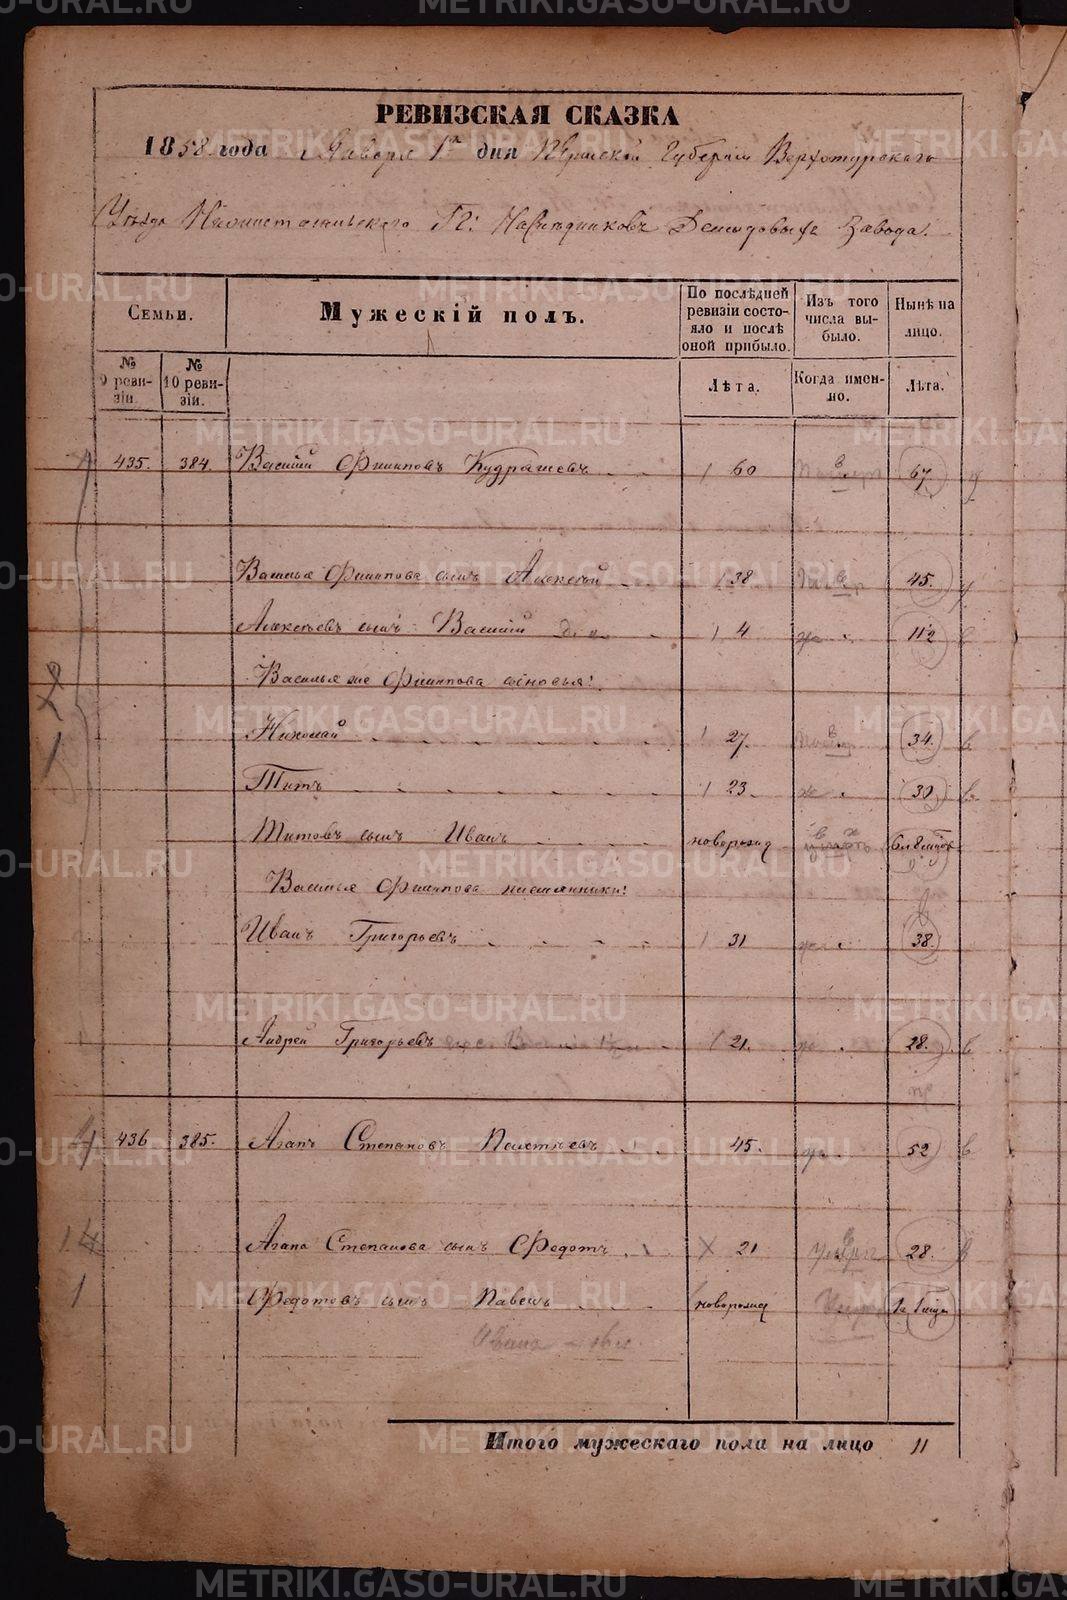 РЕВИЗСКАЯ СКАЗКА
1858 года Января 1го дня Пермской Губернии Верхотурского
Уѣзда Гг: Наслѣдниковъ Демидовыхъ Завода.
Семьи.
Мужескій полъ.
По послѣдней ревизіи состояло и послѣ оной прибыло.
Изъ того числа выбыло.
Нынѣ на лицо.
№ 9 ревизіи.
№ 10 ревизіи.
Лѣта.
Когда именно.
Лѣта.
435. 384. Василій Филиповъ Кудрашевъ 60 67
Василья Филипова сынъ Алексѣй 38 45.
Алексѣевъ сынъ Василій 4 11½
Василья же Филипова сыновья:
Николай 27. 34.
Титъ 23. 30.
Титовъ сынъ Иванъ новорожд
Василья Филипова племянники:
Иванъ Григорьевъ 31 38.
Андрей Григорьевъ 21. 28.
436 385. Агапъ Степановъ 45. 52
Агапа Степанова сынъ Федотъ 21 28.
Федотовъ сынъ Павелъ новорожд
Итого мужескаго пола на лицо 11
METRIKI.GASO-URAL.RU